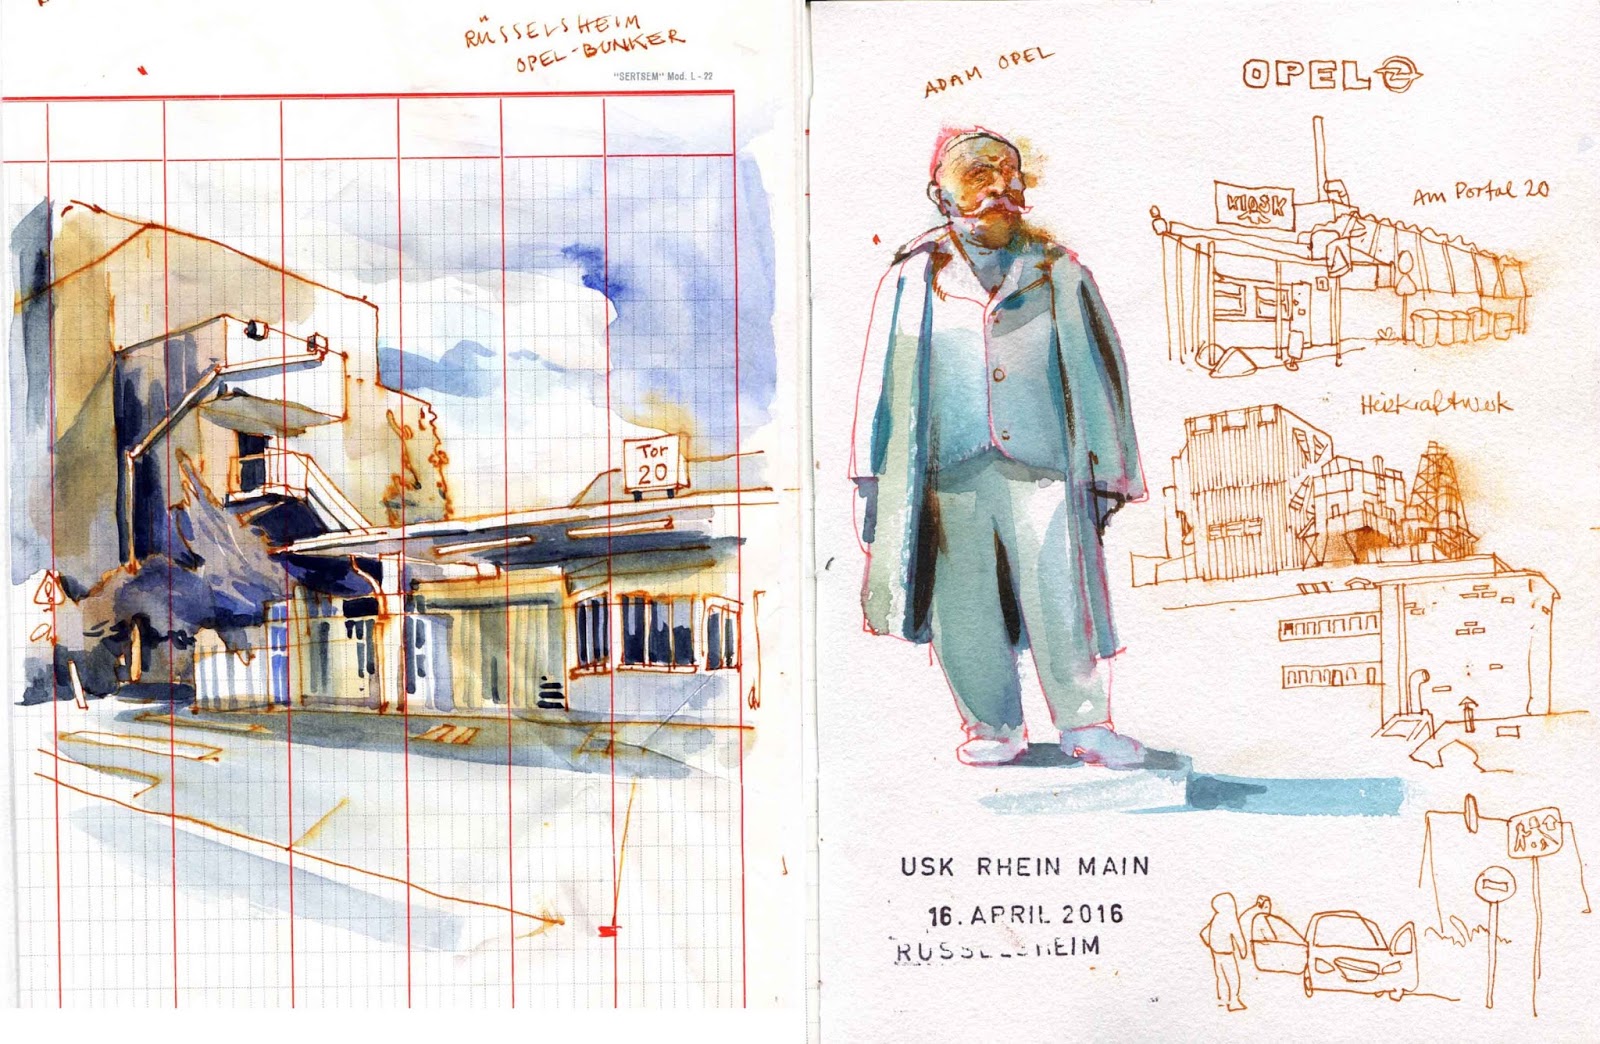 RÜSSELSHEIM
OPEL-BUNKER
"SERTSEM" Mod. L-22
Tor
20
ADAM OPEL
OPEL
KIOSK
Am Portal 20
Heizkraftwerk
USK RHEIN MAIN
16. APRIL 2016
RÜSSELSHEIM